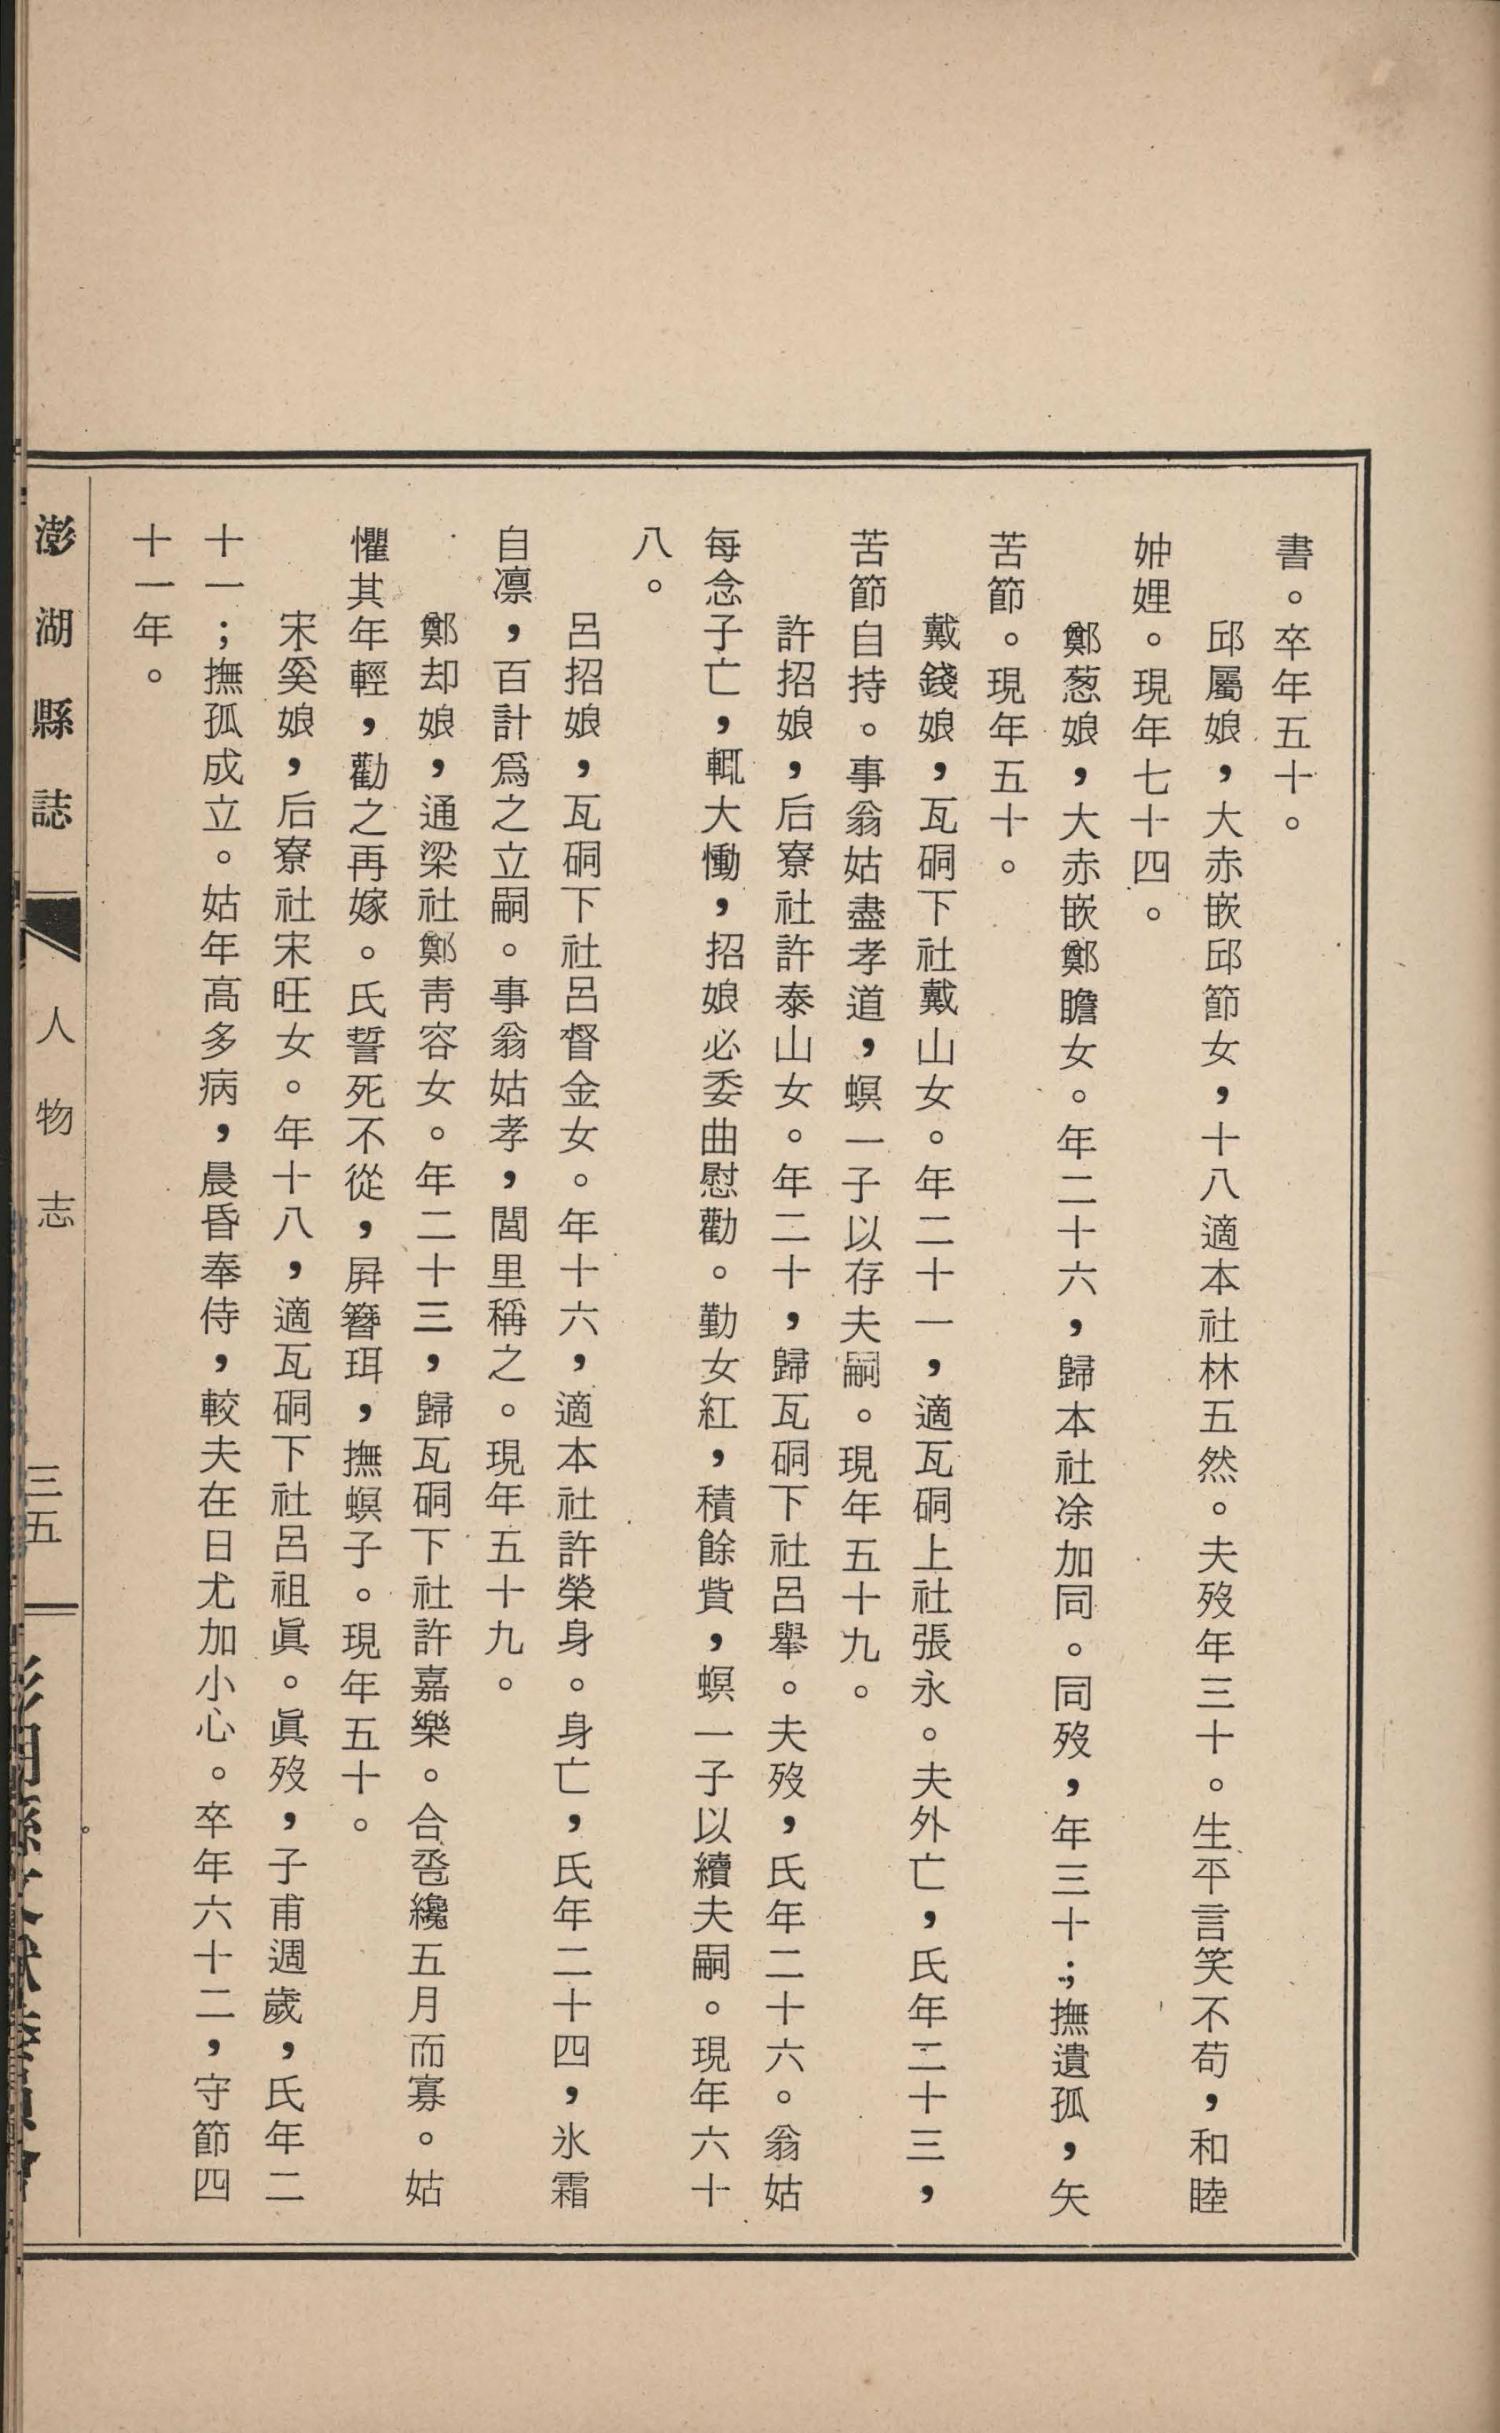 書。卒年五十。
邱屬娘，大赤嵌邱節女，十八適本社林五然。夫歿年三十。生平言笑不苟，和睦
妯娌。現年七十四。
鄭葱娘，大赤嵌鄭瞻女。年二十六，歸本社凃加同。同歿，年三十；撫遺孤，矢
苦節。現年五十。
戴錢娘，瓦硐下社戴山女。年二十一，適瓦硐上社張永。夫外亡，氏年二十三，
苦節自持。事翁姑盡孝道，螟一子以存夫嗣。現年五十九。
許招娘，后寮社許泰山女。年二十，歸瓦硐下社呂舉。夫歿，氏年二十六。翁姑
每念子亡，輒大慟，招娘必委曲慰勸。勤女紅，積餘貲，螟一子以續夫嗣。現年六十
八。
呂招娘，瓦硐下社呂督金女。年十六，適本社許榮身。身亡，氏年二十四，氷霜
自凛，百計爲之立嗣。事翁姑孝，閭里稱之。現年五十九。
鄭却娘，通梁社鄭靑容女。年二十三，歸瓦硐下社許嘉樂。合巹纔五月而寡。姑
懼其年輕，勸之再嫁。氏誓死不從，屛簪珥，撫螟子。現年五十。
宋奚娘，后寮社宋旺女。年十八，適瓦硐下社呂祖眞。眞歿，子甫週歲，氏年二
十一；撫孤成立。姑年高多病，晨昏奉侍，較夫在日尤加小心。卒年六十二，守節四
十一年。
澎湖縣誌
人物志
三五